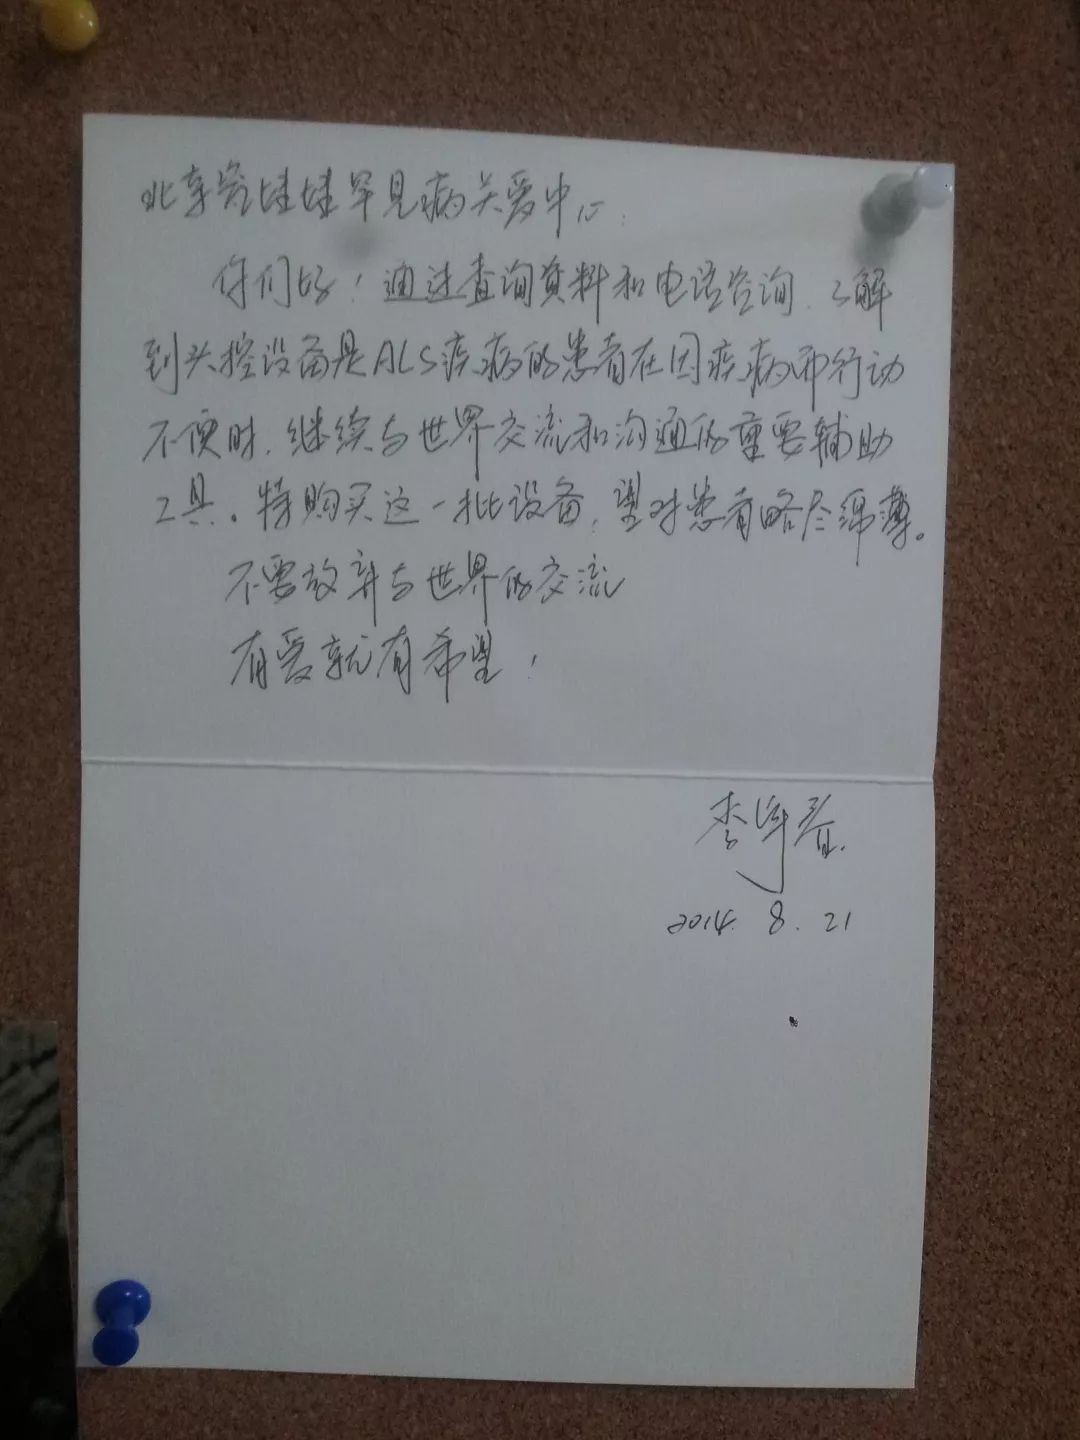 北京瓷娃娃罕见病关爱中心：
你们好！通过查询资料和电话咨询，了解
到头控设备是ALS疾病的患者在因疾病而行动
不便时，继续与世界交流和沟通的重要辅助
工具。特购买这一批设备，望对患者略尽绵薄。
不要放弃与世界的交流
有爱就有希望！
李宇春
2014. 8. 21